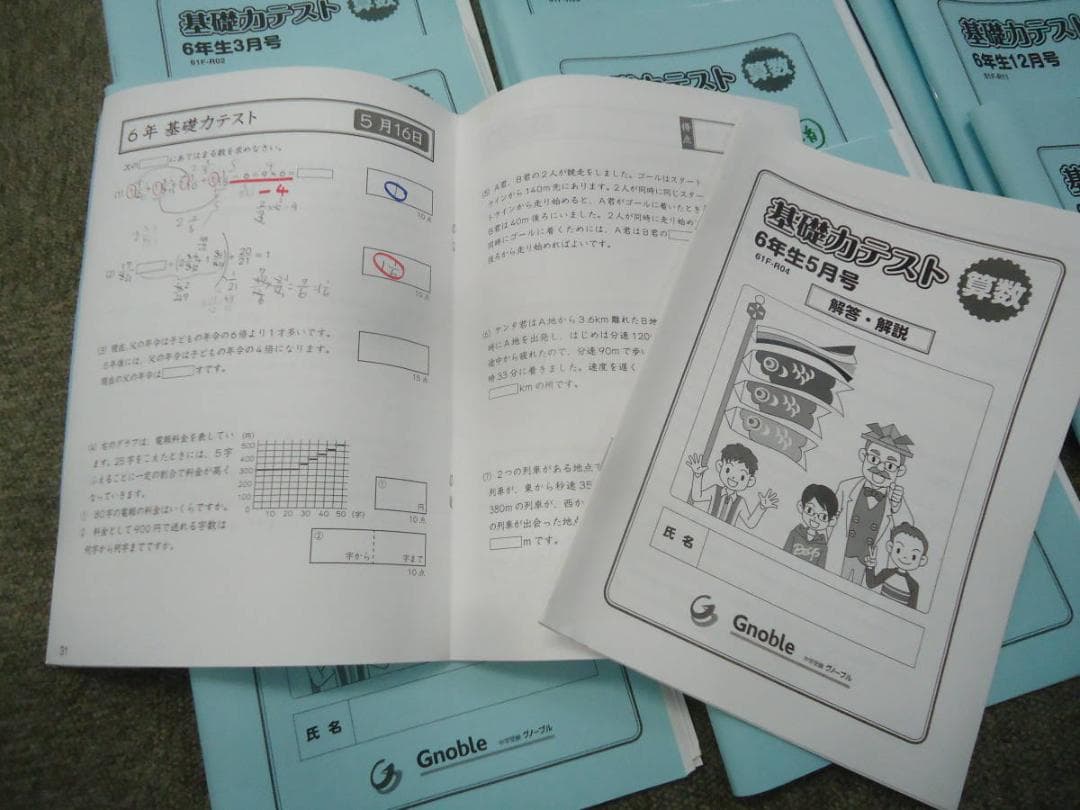 基礎力テスト
6年生3月号
61F-R02
算数
算数
基礎力テスト
6年生12月号
61F-R11
6年 基礎力テスト
5月16日
次の にあてはまる数を求めなさい。
(1)
-4
10点
(2)
10点
(3) 現在、父の年令は子どもの年令の6倍より1才多いです。
5年後には、父の年令は子どもの年令の4倍になります。
現在の父の年令は 才です。
15点
(4) 右のグラフは、電報料金を表してい
ます。25字をこえたときには、5字
ふえるごとに一定の割合で料金が高く
なっていきます。
① 80字の電報の料金はいくらですか。
② 料金として400円で送れる字数は
何字から何字までですか。
(円)
500
400
300
200
100
0
10 20 30 40 50 (字)
①
円
10点
②
字から
字まで
10点
31
得点
(5) A君、B君の2人が競走をしました。ゴールはスタート
ラインから140m先にあります。2人が同時に同じスター
トラインから走り始めると、A君がゴールに着いたとき
B君は40m後ろにいました。2人が同時に走り始め
同時にゴールに着くためには、A君はB君の
後ろから走り始めればよいです。
(6) ケンタ君はA地から3.6km離れた B地
時にA地を出発し、はじめは分速120
途中から疲れたので、分速90mで歩い
時33分に着きました。速度を遅く
kmの所です。
(7) 2つの列車がある地点で
列車が、東から秒速35
380mの列車が、西か
の列車が出会った地点
mです。
基礎力テスト
6年生5月号
61F-R04
算数
解答・解説
氏名
Gnoble
中学受験 グノーブル
氏名
Gnoble
中学受験 グノーブル